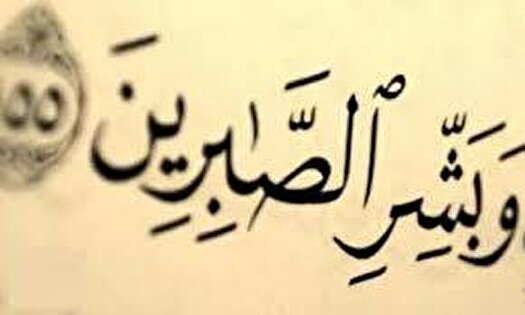 وَبَشِّرِ ٱلصَّـٰبِرِينَ ٥٥